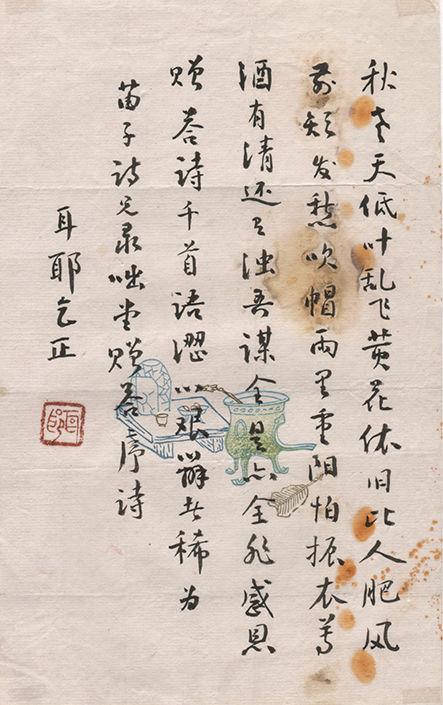 秋老天低叶乱飞黄花依旧比人肥风
前短发愁吹帽雨里重阳怕振衣尊
酒有清还又浊吾谋全是亦全非感恩
赠荅诗千首语涩心艰解者稀为
苗子诗兄录咄堂赠荅序诗
耳耶乞正